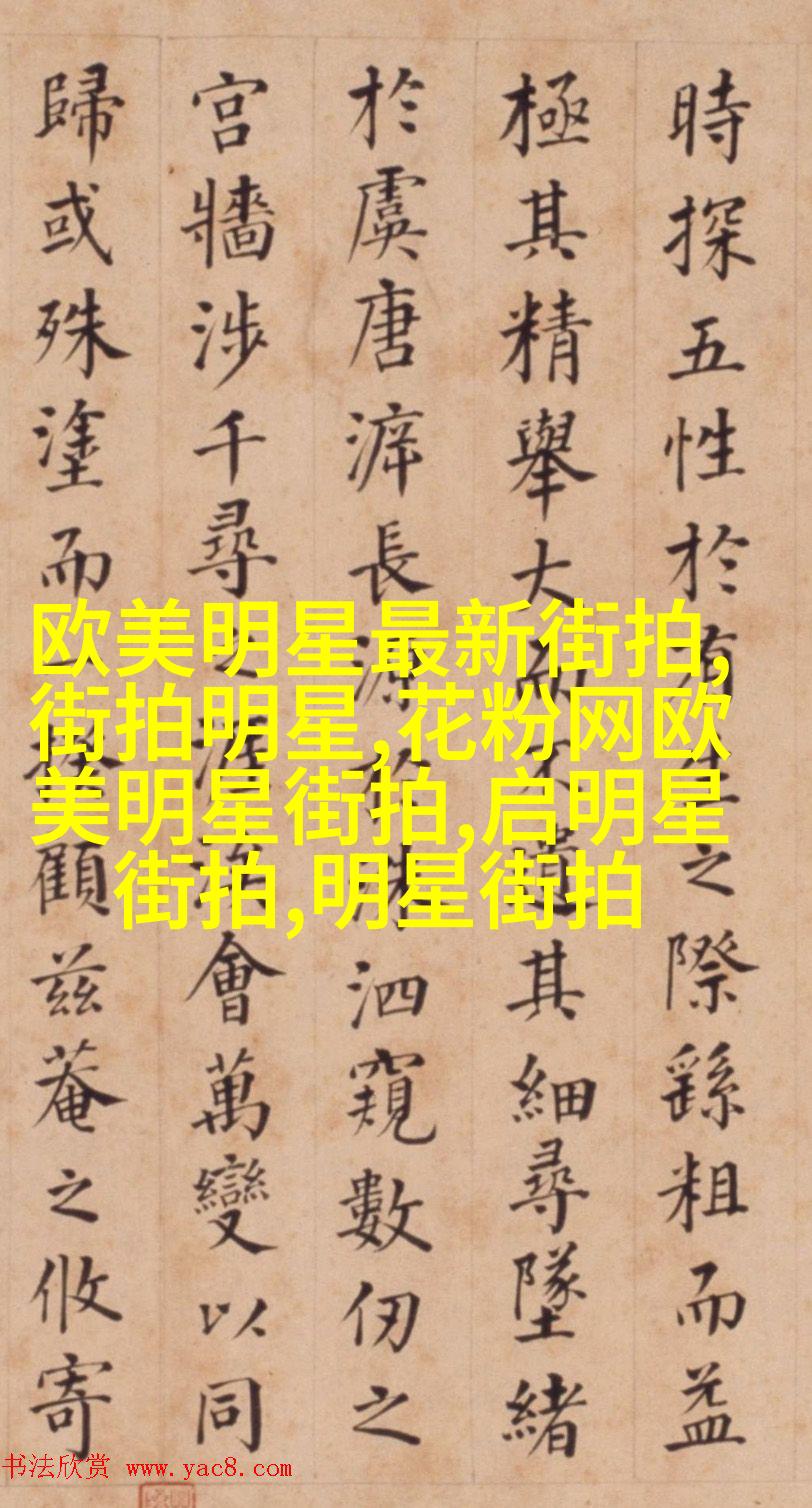 時探五性於有生之際繇粗而益
極其精舉大而不遺其細尋墜緒
於虞唐長源於洙泗窺數仞之
宮牆涉千尋之涯涘會萬變以同
歸或殊塗而一揆顧茲菴之攸寄
欧美明星最新街拍,
街拍明星,花粉网欧
美明星街拍,启明星
街拍,明星街拍
书法欣赏 www.yac8.com